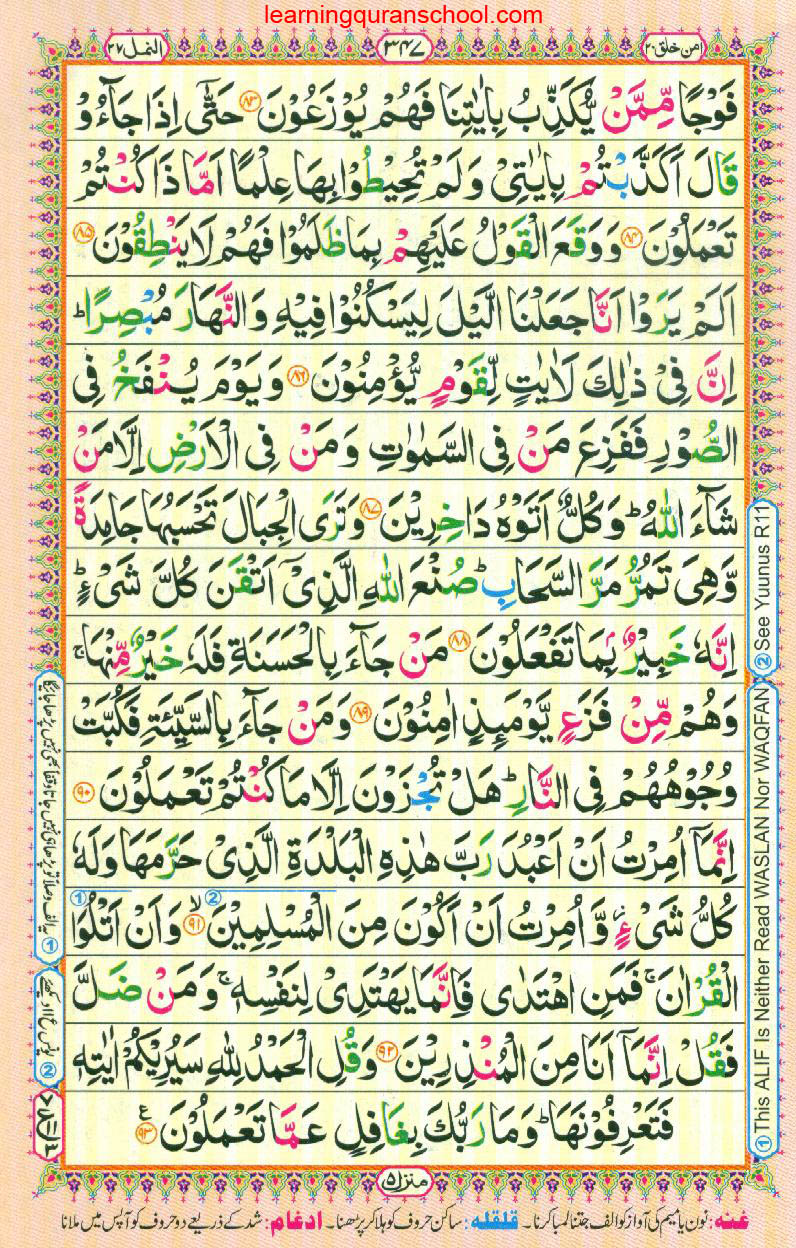 learningquranschool.com
امن خلق ۲۰
۳۴۷
النمل ۲۷
فَوْجًا مِّمَّنْ يُّكَذِّبُ بِاٰيٰتِنَا فَهُمْ يُوْزَعُوْنَ ۸۳ حَتّٰٓى اِذَا جَآءُوْ
قَالَ اَكَذَّبْتُمْ بِاٰيٰتِىْ وَلَمْ تُحِيْطُوْا بِهَا عِلْمًا اَمَّا ذَا كُنْتُمْ
تَعْمَلُوْنَ ۸۴ وَوَقَعَ الْقَوْلُ عَلَيْهِمْ بِمَا ظَلَمُوْا فَهُمْ لَا يَنْطِقُوْنَ ۸۵
اَلَمْ يَرَوْا اَنَّا جَعَلْنَا الَّيْلَ لِيَسْكُنُوْا فِيْهِ وَالنَّهَارَ مُبْصِرًا ؕ
اِنَّ فِىْ ذٰلِكَ لَاٰيٰتٍ لِّقَوْمٍ يُّؤْمِنُوْنَ ۸۶ وَيَوْمَ يُنْفَخُ فِى
الصُّوْرِ فَفَزِعَ مَنْ فِى السَّمٰوٰتِ وَمَنْ فِى الْاَرْضِ اِلَّا مَنْ
شَآءَ اللّٰهُ ؕ وَكُلٌّ اَتَوْهُ دَاخِرِيْنَ ۸۷ وَتَرَى الْجِبَالَ تَحْسَبُهَا جَامِدَةً
وَّهِىَ تَمُرُّ مَرَّ السَّحَابِ ؕ صُنْعَ اللّٰهِ الَّذِىْٓ اَتْقَنَ كُلَّ شَىْءٍ ؕ
اِنَّهٗ خَبِيْرٌۢ بِمَا تَفْعَلُوْنَ ۸۸ مَنْ جَآءَ بِالْحَسَنَةِ فَلَهٗ خَيْرٌ مِّنْهَا ۚ
وَهُمْ مِّنْ فَزَعٍ يَّوْمَئِذٍ اٰمِنُوْنَ ۸۹ وَمَنْ جَآءَ بِالسَّيِّئَةِ فَكُبَّتْ
وُجُوْهُهُمْ فِى النَّارِ ؕ هَلْ تُجْزَوْنَ اِلَّا مَا كُنْتُمْ تَعْمَلُوْنَ ۹۰
اِنَّمَآ اُمِرْتُ اَنْ اَعْبُدَ رَبَّ هٰذِهِ الْبَلْدَةِ الَّذِىْ حَرَّمَهَا وَلَهٗ
كُلُّ شَىْءٍ ؗ وَّاُمِرْتُ اَنْ اَكُوْنَ مِنَ الْمُسْلِمِيْنَ ۙ ۹۱ وَاَنْ اَتْلُوَا
الْقُرْاٰنَ ۚ فَمَنِ اهْتَدٰى فَاِنَّمَا يَهْتَدِىْ لِنَفْسِهٖ ۚ وَمَنْ ضَلَّ
فَقُلْ اِنَّمَآ اَنَا مِنَ الْمُنْذِرِيْنَ ۹۲ وَقُلِ الْحَمْدُ لِلّٰهِ سَيُرِيْكُمْ اٰيٰتِهٖ
فَتَعْرِفُوْنَهَا ؕ وَمَا رَبُّكَ بِغَافِلٍ عَمَّا تَعْمَلُوْنَ ع ۹۳
① This ALIF Is Neither Read WASLAN Nor WAQFAN ② See Yuunus R11
① یہ الف وصلاً تو پڑھا ہی نہیں جاتا وقفاً بھی نہیں پڑھا جائیگا
② یونس ع ۱۱ دیکھئے
منزل ۵
غنه: نون یا میم کی آواز کو الف جتنا لمبا کرنا۔ قلقله: ساکن حروف کو ہلا کر پڑھنا۔ ادغام: شد کے ذریعے دو حروف کو آپس میں ملانا